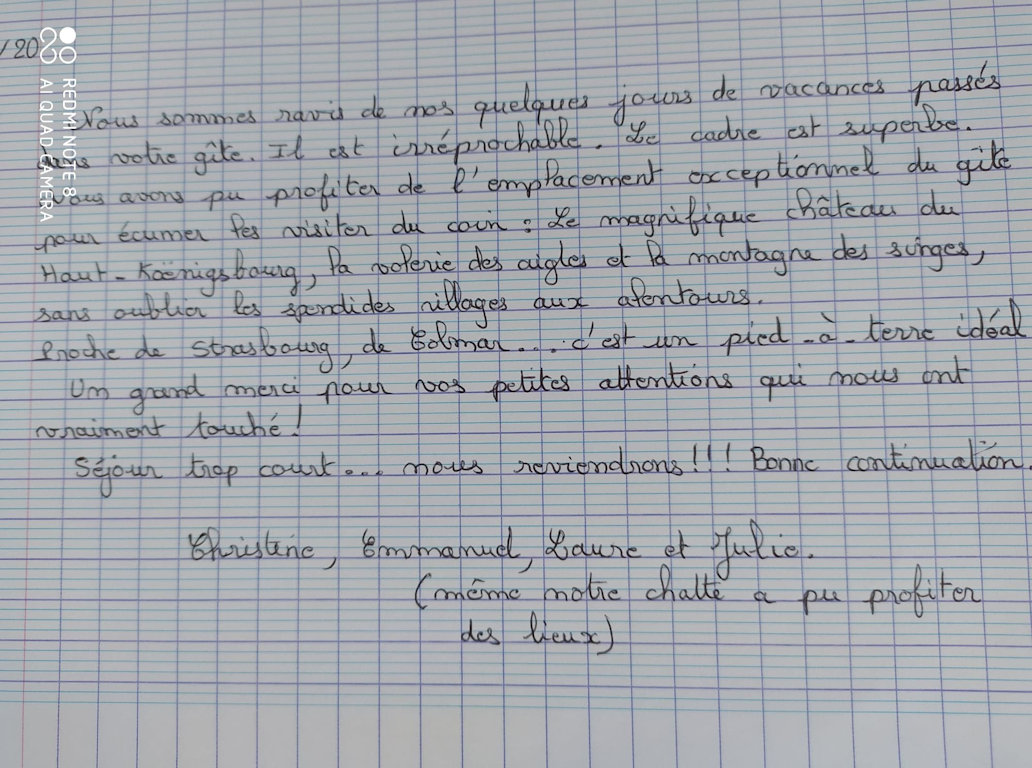 /20
Nous sommes ravis de nos quelques jours de vacances passés
dans votre gîte. Il est irréprochable. Le cadre est superbe.
Nous avons pu profiter de l'emplacement exceptionnel du gîte
pour écumer les visiter du coin : Le magnifique château du
Haut-Koënigsbourg, la volerie des aigles et la montagne des singes,
sans oublier les spendides villages aux alentours.
Proche de Strasbourg, de Colmar.... c'est un pied-à-terre idéal
Un grand merci pour vos petites attentions qui nous ont
vraiment touché !
Séjour trop court... nous reviendrons !!! Bonne continuation.
Christine, Emmanuel, Laure et Julie.
(même notre chatte a pu profiter
des lieux)
REDMI NOTE 8
AI QUAD CAMERA